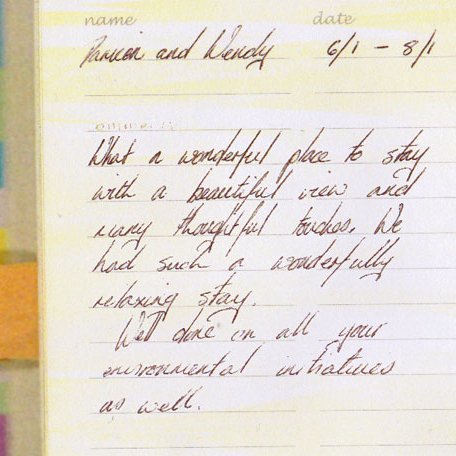 name date
and Wendy 6/1 - 8/1
comments
What a wonderful place to stay
with a beautiful view and
many thoughtful touches. We
had such a wonderfully
relaxing stay.
Well done on all your
environmental initiatives
as well.